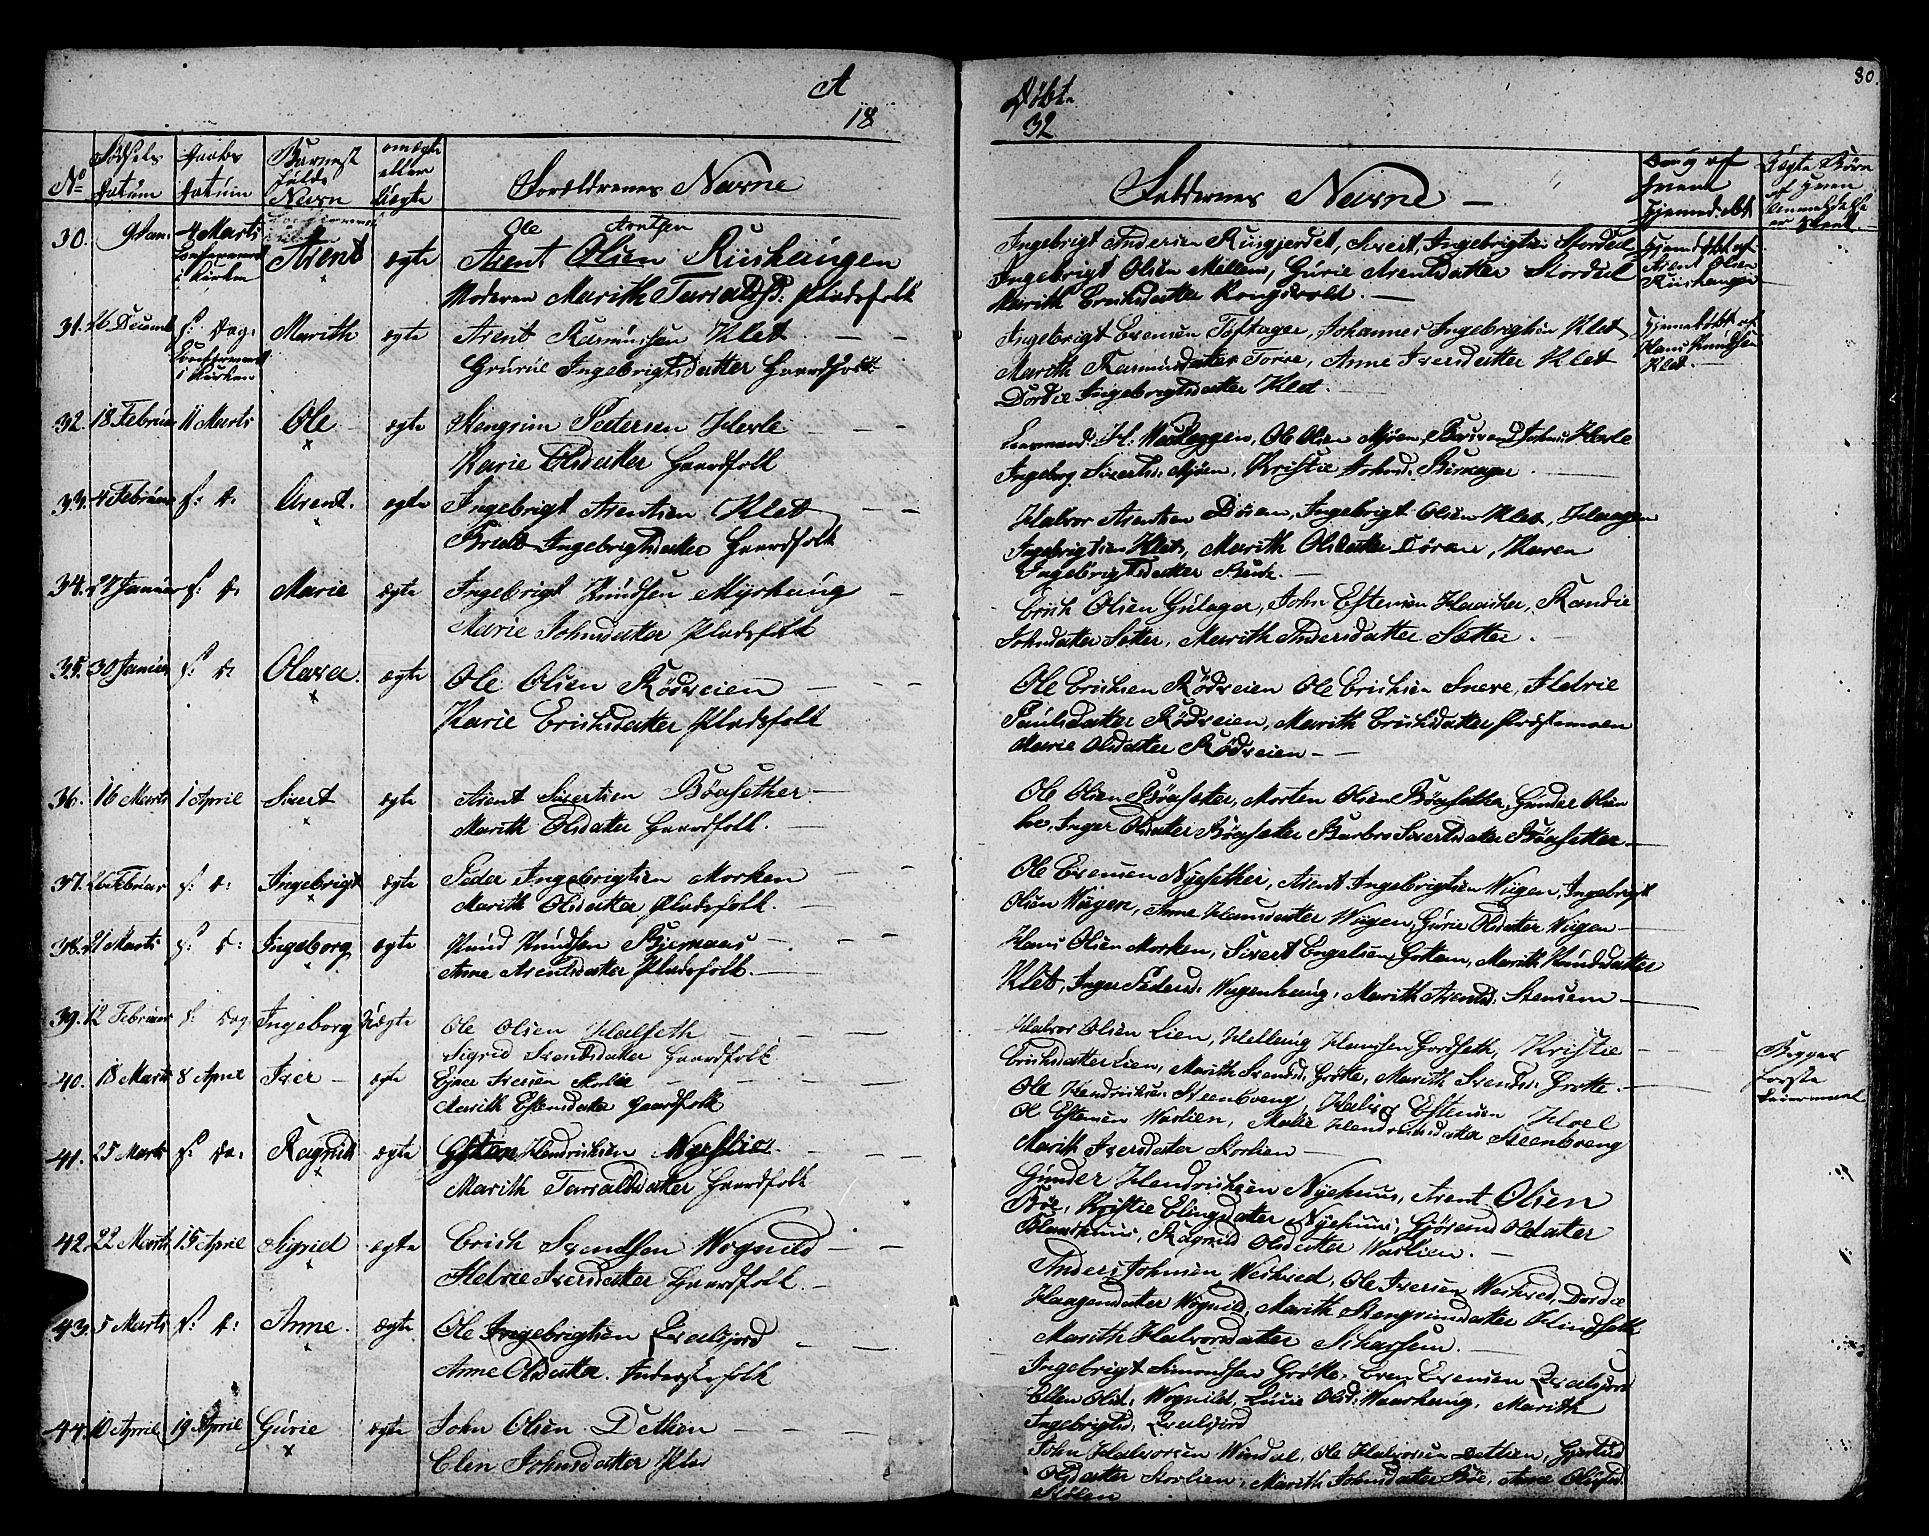 A
18
Døbte
32
80.
No
Fødsels Datum
Daabs Datum
Barnets fulde Navn
om ægte eller Uægte
Forældrenes Navne
Faddernes Navne
30. 4 Marts Confirmeret i Kirken Arent ægte
Ole Arntsen
Arent Olsen Riishaugen
Moderen Marith Taraldsd: Pladsfolk
Ingebrigt Andersen Rusgjerdet, Sivert Ingebrigtsen Stordeil
Ingebrigt Olsen Mellem, Gurie Arentsdatter Stordeil
Marith Erichsdatter Kongsvold.
Hjemedøbt af Arent Olsen Riishaugen
31. 26 Decemb s: Dag: Confirmeret i Kirken Marith ægte
Arent Rasmussen Klet
Guruie Ingebrigtsdatter Gaardfolk
Ingebrigt Evensen Toftager, Johannes Ingebrigtsen Klet
Marith Rasmusdatter Torve, Anne Iversdatter Klet
Dordie Ingebrigtsdatter Klet.
Hjemedøbt af Hans Knudsen Klet.
32. 18 Februar 11 Marts Ole ægte
Stengrim Pedersen Hevle
Marie Olsdatter Gaardfolk
Ole Olsen Mjøen
Ingeborg Sivertsd: Mjøen, Kristie
33. 4 Februar s: D: Arent. ægte
Ingebrigt Arentsen Klet
Ingebrigtsdatter Gaardfolk
Halvor Arentsen Døren, Ingebrigt Olsen Klet, Haagen
Ingebrigtsen Klet, Marith Olsdatter Døren, Karen
Ingebrigtsdatter
34. 27 Januar s: D: Marie ægte
Ingebrigt Knudsen Myrhaug
Marie Johnsdatter Pladsfolk
Erich Olsen Gulager, John Estensen Haaker, Randie
Johnsdatter Setter, Marith Andersdatter Setter.
35. 30 Januar s: D: Olava. ægte
Ole Olsen Rødveien
Karie Erichsdatter Pladsfolk
Ole Erichsen Rødveien Ole Erichsen Sneve, Heldvie
Paulsdatter Rødveien, Marith Erichsdatter Præstemoen
Marie Olsdatter Rødveien
36. 16 Marts 1 April Sivert ægte
Arent Sivertsen Bøasether
Marith Olsdatter Gaardfolk.
Ole Olsen Bøasetter, Morten Olsen Bøasether, Gunder Olsen
Inger Olsdatter Bøasetter Barbro Sivertsdatter Bøasetter
37. 26 Februar s: D: Ingebrigt ægte
Peder Ingebrigtsen Morken
Marith Olsdatter Pladsfolk.
Ole Evensen Nyesether, Arent Ingebrigtsen Wügen, Ingebrigt
Olsen Wügen, Anne Hansdatter Wügen, Gurie Olsdatter Wügen
38. 21 Marts s: D: Ingeborg ægte
Knud Knudsen Bjernaas
Anne Arentsdatter Pladsfolk.
Hans Olsen Morken, Sivert Engelsen Gottem, Marith Knudsdatter
Klet, Inger Pedersd: Wügenhaug, Marith Arentsd: Stensem
39. 12 Februar s: Dag Ingeborg Uægte
Ole Olsen Halseth
Sigrid Svendsdatter Gaardfolk
Halvor Olsen Lien, Helling Hansen Gorseth, Kristie
Erichsdatter Lien, Marith Svendsd: Grøtte, Marith Svendsd: Grøtte.
Begges første Leiermaal
40. 18 Marts 8 April Iver ægte
Iversen Stølie
Marith Estensdatter Gaardfolk
Ole Hendrichsen Steenboeng, Halvor Estensen Hoel
Ol Estensen Waslien, Malie Hendrichsdatter Steenboeng
Marith Iversdatter Storlien
41. 25 Marts s: Da: Ragnild ægte
Hendrichsen
Marith Taraldsdatter Gaardfolk
Gunder Hendrichsen Nyehuus, Arent Olsen
Bøe, Kristie Elingsdatter Nyehuus, Gjørend Olsdatter
Blaashuus, Ragnild Olsdatter Waslien.
42. 22 Marts 15 April Sigrid ægte
Erich Svendsen Wognild
Heldvie Iversdatter Gaardfolk
Anders Johnsen Weihved, Ole Iversen Weihved, Dordie
Haagensdatter Wognild, Marith Stengrimsdatter Hindseth
Marith Halvorsdatter
43. 5 Marts s: D: Anne. ægte
Ole Ingebrigtsen Qvalsjord
Anne Olsdatter. Inderstefolk
Ingebrigt Simonsen Grøtte, Even Evensen Qvalsjord
Ellen Olsd: Wognild, Lucie Olsd: Waarhaug, Marith
Ingebrigtsd. Qvalsjord
44. 10 April 19 April Gurie ægte
John Olsen Detlien
Elin Johnsdatter Plad
John Halvorsen Windal, Ole Halvorsen Detlien, Gjertrud
Olsdatter Storlien, Marith Johnsdatter Bøe, Anne Olsd.
Stølen